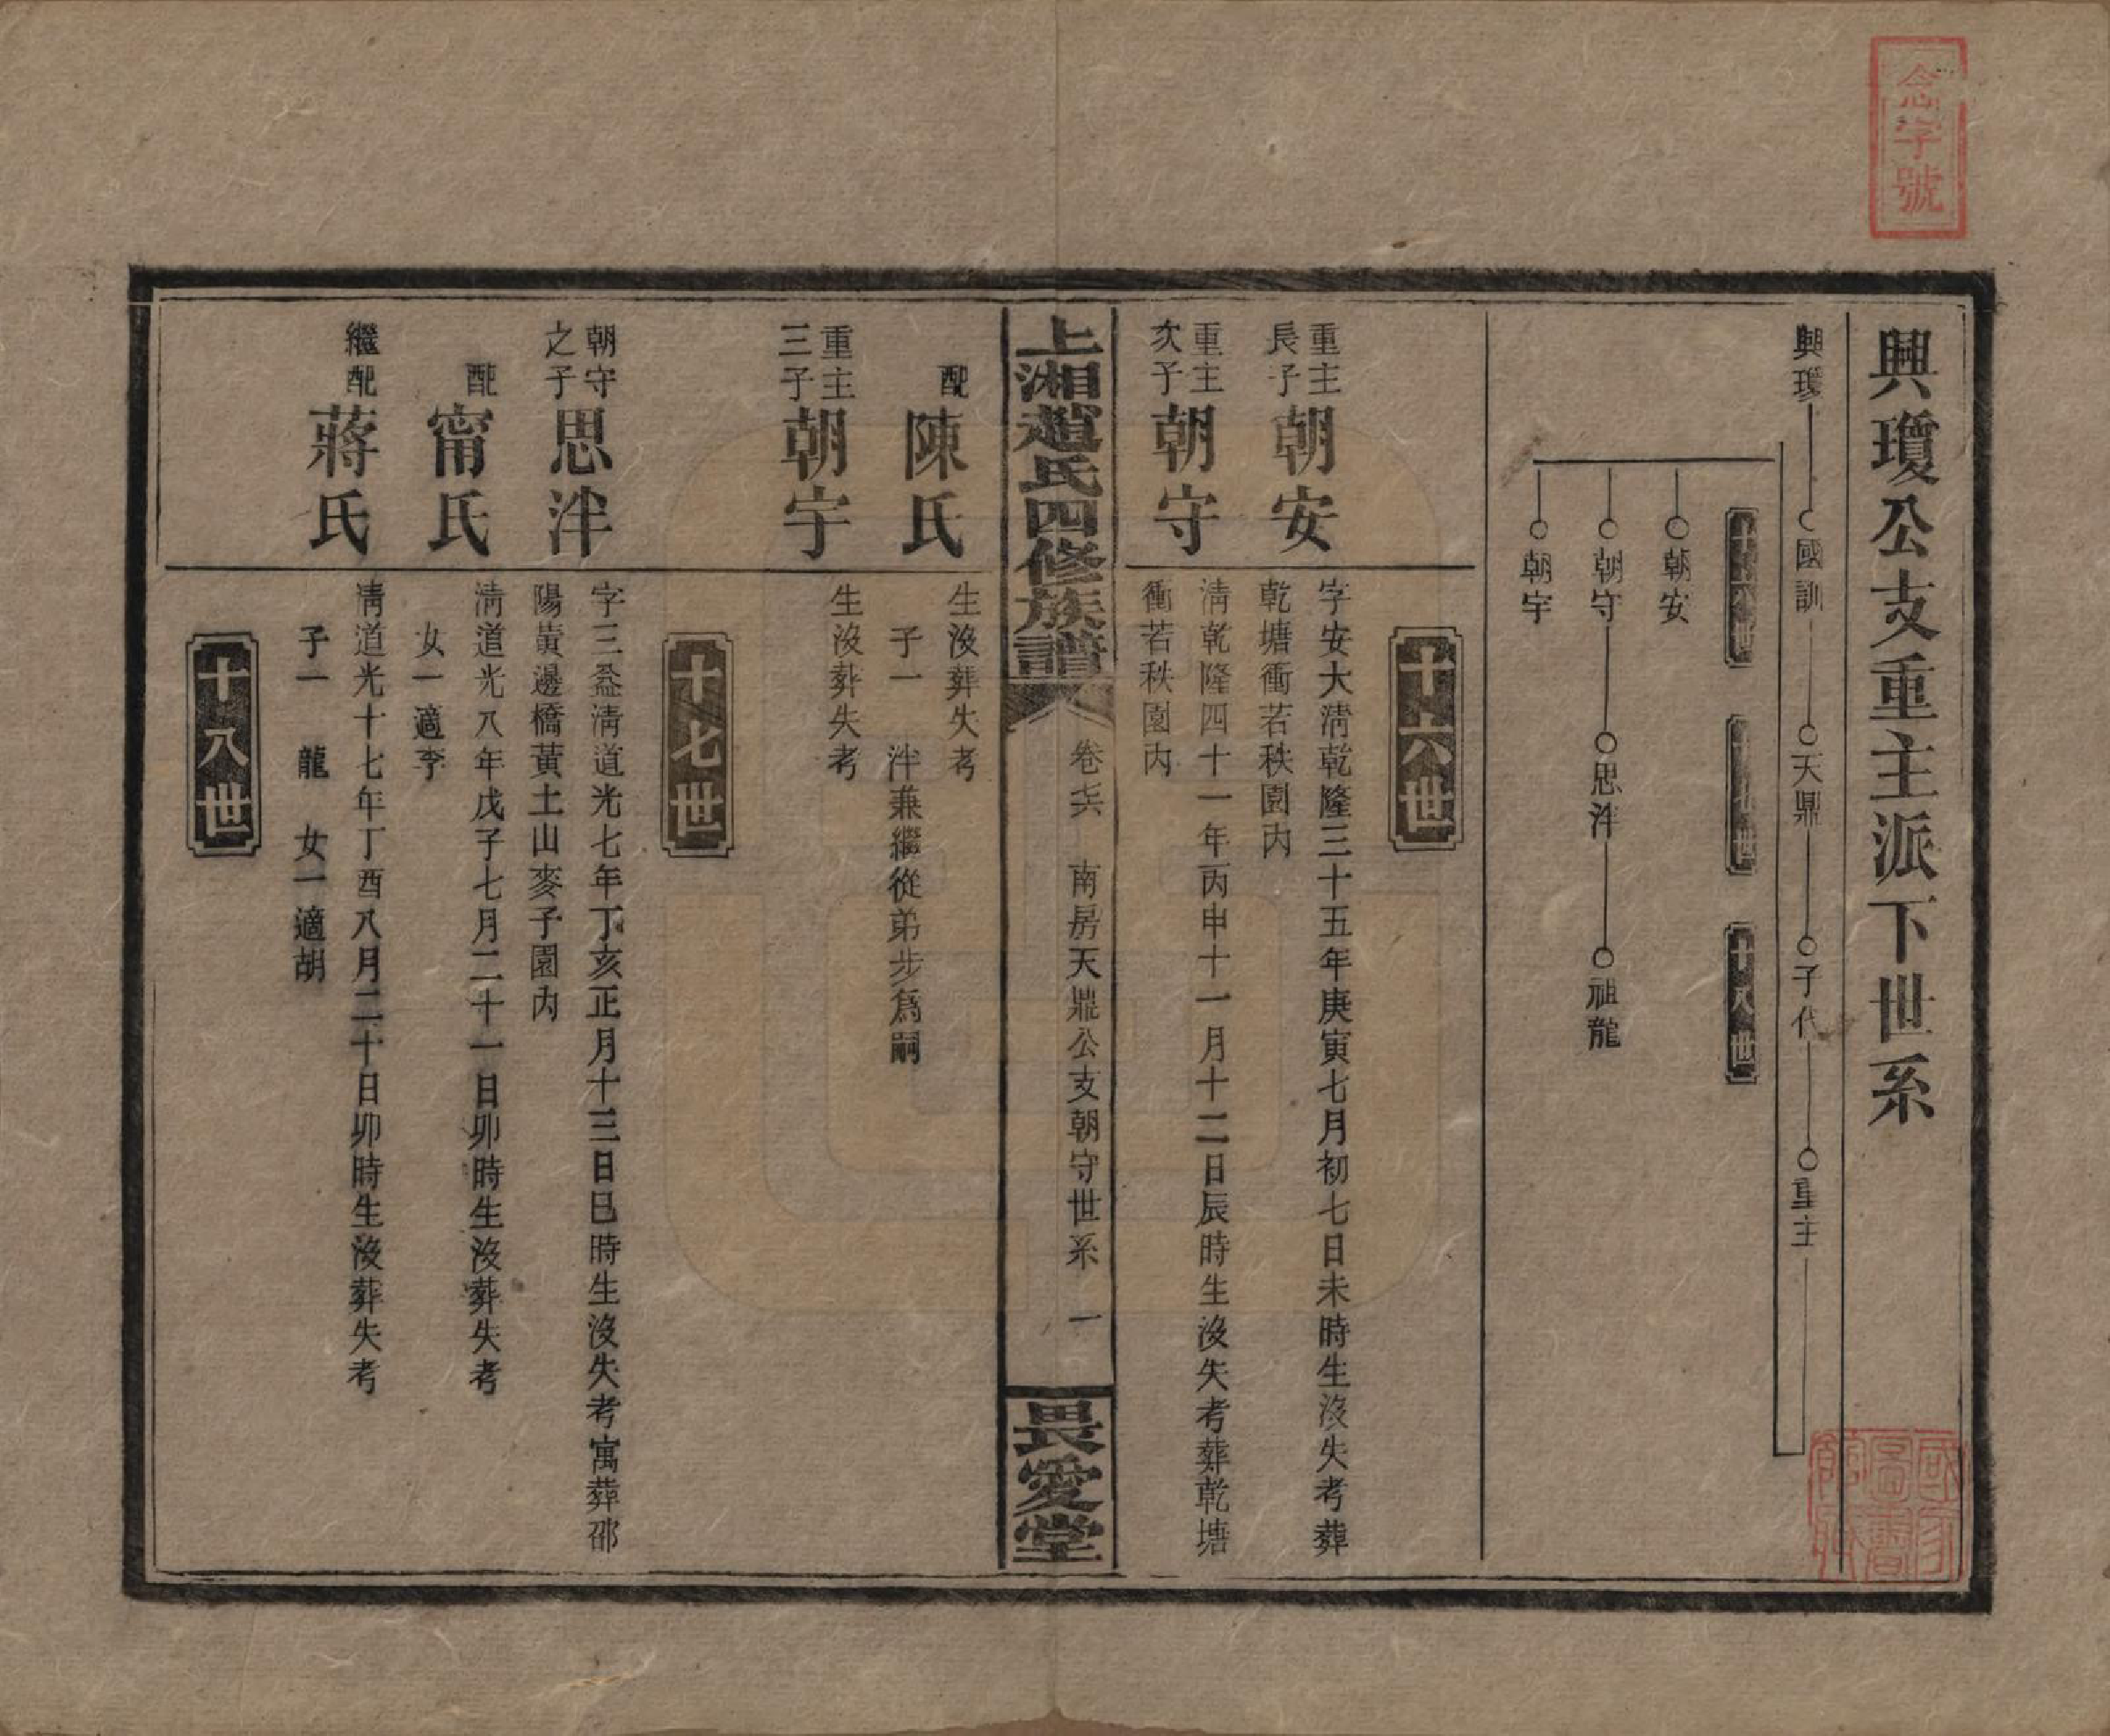 念字號
興瓊公支重主派下世系
興瓊 國訓 天鼎 子代 重主
十六世 十七世 十八世
朝安
朝守 思泮 祖龍
朝宇
十六世
重主長子 朝安 字安大清乾隆三十五年庚寅七月初七日未時生沒失考葬
乾塘衝若秩園內
重主次子 朝守 清乾隆四十一年丙申十一月十二日辰時生沒失考葬乾塘
衝若秩園內
上湘趙氏四修族譜 卷 南房天鼎公支朝守世系 一 畏愛堂
配 陳氏 生沒葬失考
子一 泮兼繼從弟步爲嗣
重主三子 朝宇 生沒葬失考
十七世
朝守之子 思泮 字三益清道光七年丁亥正月十三日巳時生沒失考寓葬邵
陽黃邊橋黃土山麥子園內
配 甯氏 清道光八年戊子七月二十一日卯時生沒葬失考
女一適李
繼配 蔣氏 清道光十七年丁酉八月二十日卯時生沒葬失考
子一 龍 女一適胡
十八世